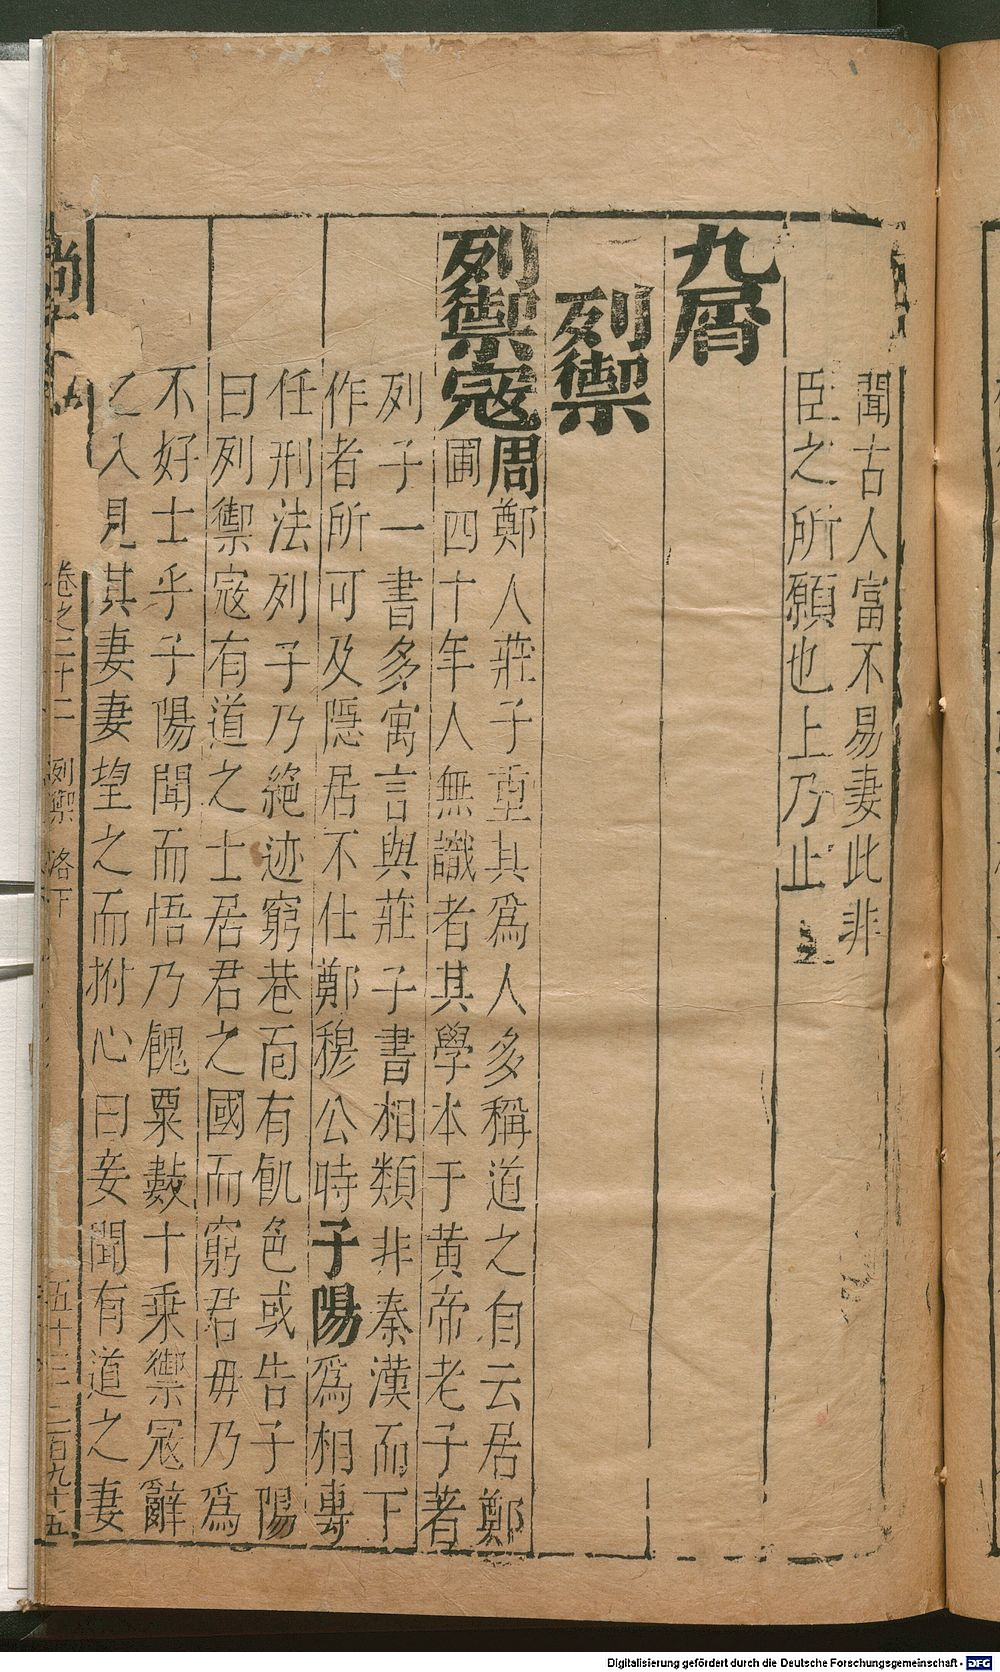 聞古人富不易妻此非
臣之所願也上乃止
九屑
列禦
列禦寇周鄭人莊子重其爲人多稱道之自云居鄭
圃四十年人無識者其學本于黃帝老子著
列子一書多寓言與莊子書相類非秦漢而下
作者所可及隱居不仕鄭穆公時子陽爲相專
任刑法列子乃絕迹窮巷靣有飢色或告子陽
曰列禦寇有道之士居君之國而窮君毋乃爲
不好士乎子陽聞而悟乃餽粟數十乘禦寇辭
之入見其妻妻望之而拊心曰妾聞有道之妻
尚
卷之二十二 列禦 洛下
五十三 二百九十五
Digitalisierung gefördert durch die Deutsche Forschungsgemeinschaft - DFG